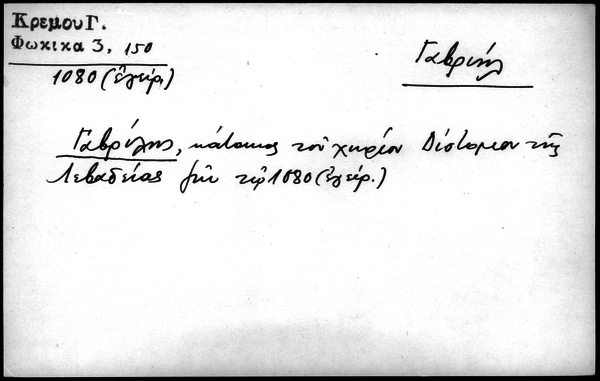 Κρεμου Γ.
Φωκικα 3, 150
1080 (ἐγείρ.)
Γαβριήλ
Γαβρίλης, κάτοικος τοῦ χωρίου Δίστομον τῆς
Λεβαδείας ζῶν τῷ 1080 (ἐγείρ.)